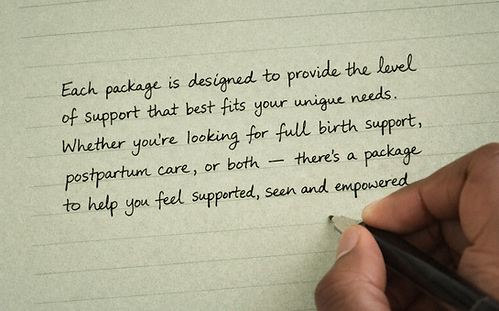 Each package is designed to provide the level
of support that best fits your unique needs.
Whether you're looking for full birth support,
postpartum care, or both — there's a package
to help you feel supported, seen and empowered